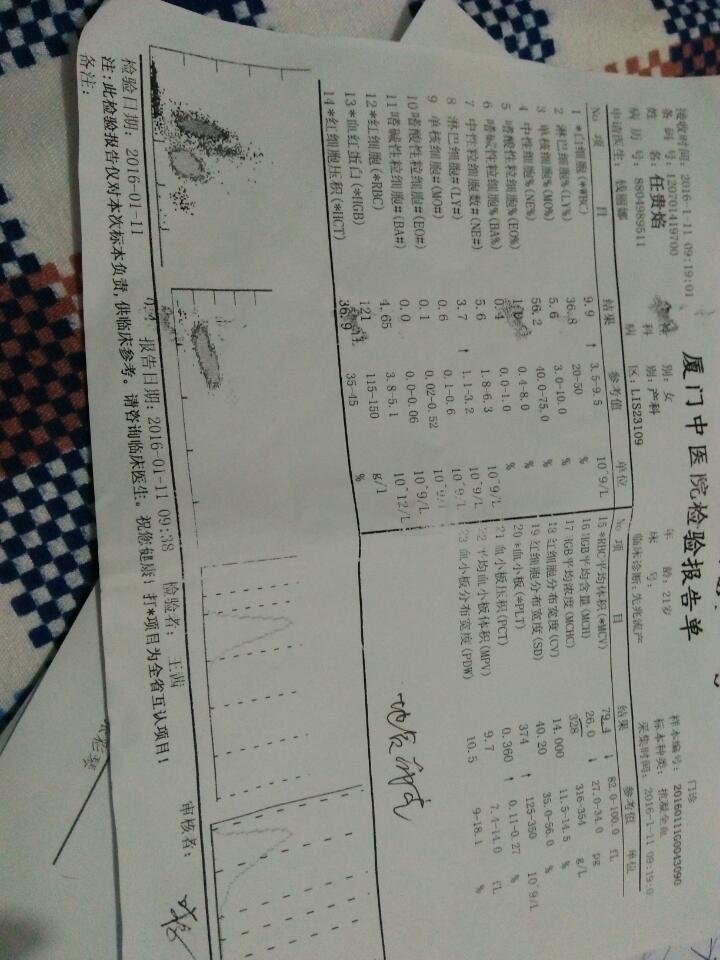 厦门中医院检验报告单
接收时间: 2016-1-11 09:19:01 门诊
条码号: 120701419700 别: 女 年龄: 21岁 样本编号: 20160111G0043090
姓名: 任贵焰 科别: 产科 床号: 标本种类: 全血
病历号: 8804989511 病区: LIS23109 临床诊断: 先兆流产 采集时间: 2016-1-11 09:19:0
申请医生: 钱丽娜
No 项目 结果 参考值 单位 No 项目 结果 参考值 单位
1 *白细胞(*WBC) 9.9 ↑ 3.5-9.5 10^9/L 15 *RBC平均体积(*MCV) 79.4 ↓ 82.0-100.0 fL
2 淋巴细胞%(LY%) 36.8 20-50 % 16 HGB平均含量(MCH) 26.0 ↓ 27.0-34.0 pg
3 单核细胞%(MO%) 5.6 3.0-10.0 % 17 HGB平均浓度(MCHC) 328 316-354 g/L
4 中性细胞%(NE%) 56.2 40.0-75.0 % 18 红细胞分布宽度(CV) 14.000 11.5-14.5 %
5 嗜酸性粒细胞%(EO%) 0.4-8.0 % 19 红细胞分布宽度(SD) 40.20 35.0-56.0 %
6 嗜碱性粒细胞%(BA%) 0.4 0.0-1.0 % 20 *血小板(*PLT) 374 ↑ 125-350 10^9/L
7 中性粒细胞数#(NE#) 5.6 1.8-6.3 10^9/L 21 血小板压积(PCT) 0.360 ↑ 0.11-0.27 %
8 淋巴细胞#(LY#) 3.7 ↑ 1.1-3.2 10^9/L 22 平均血小板体积(MPV) 9.7 7.4-14.0 fL
9 单核细胞#(MO#) 0.6 0.1-0.6 10^9/L 23 血小板分布宽度(PDW) 10.5 9-18.1 %
10 嗜酸性粒细胞#(EO#) 0.1 0.02-0.52 10^9/L
11 嗜碱性粒细胞#(BA#) 0.0 0.0-0.06 10^9/L
12 *红细胞(*RBC) 4.65 3.8-5.1 10^12/L
13 *血红蛋白(*HGB) 121 115-150 g/l
14 *红细胞压积(*HCT) 36.9 35-45 %
检验日期: 2016-01-11 报告日期: 2016-01-11 09:38 检验者: 王茜 审核者:
注: 此检验报告仅对本次标本负责,供临床参考。请咨询临床医生。祝您健康! 打*项目为全省互认项目!
备注: